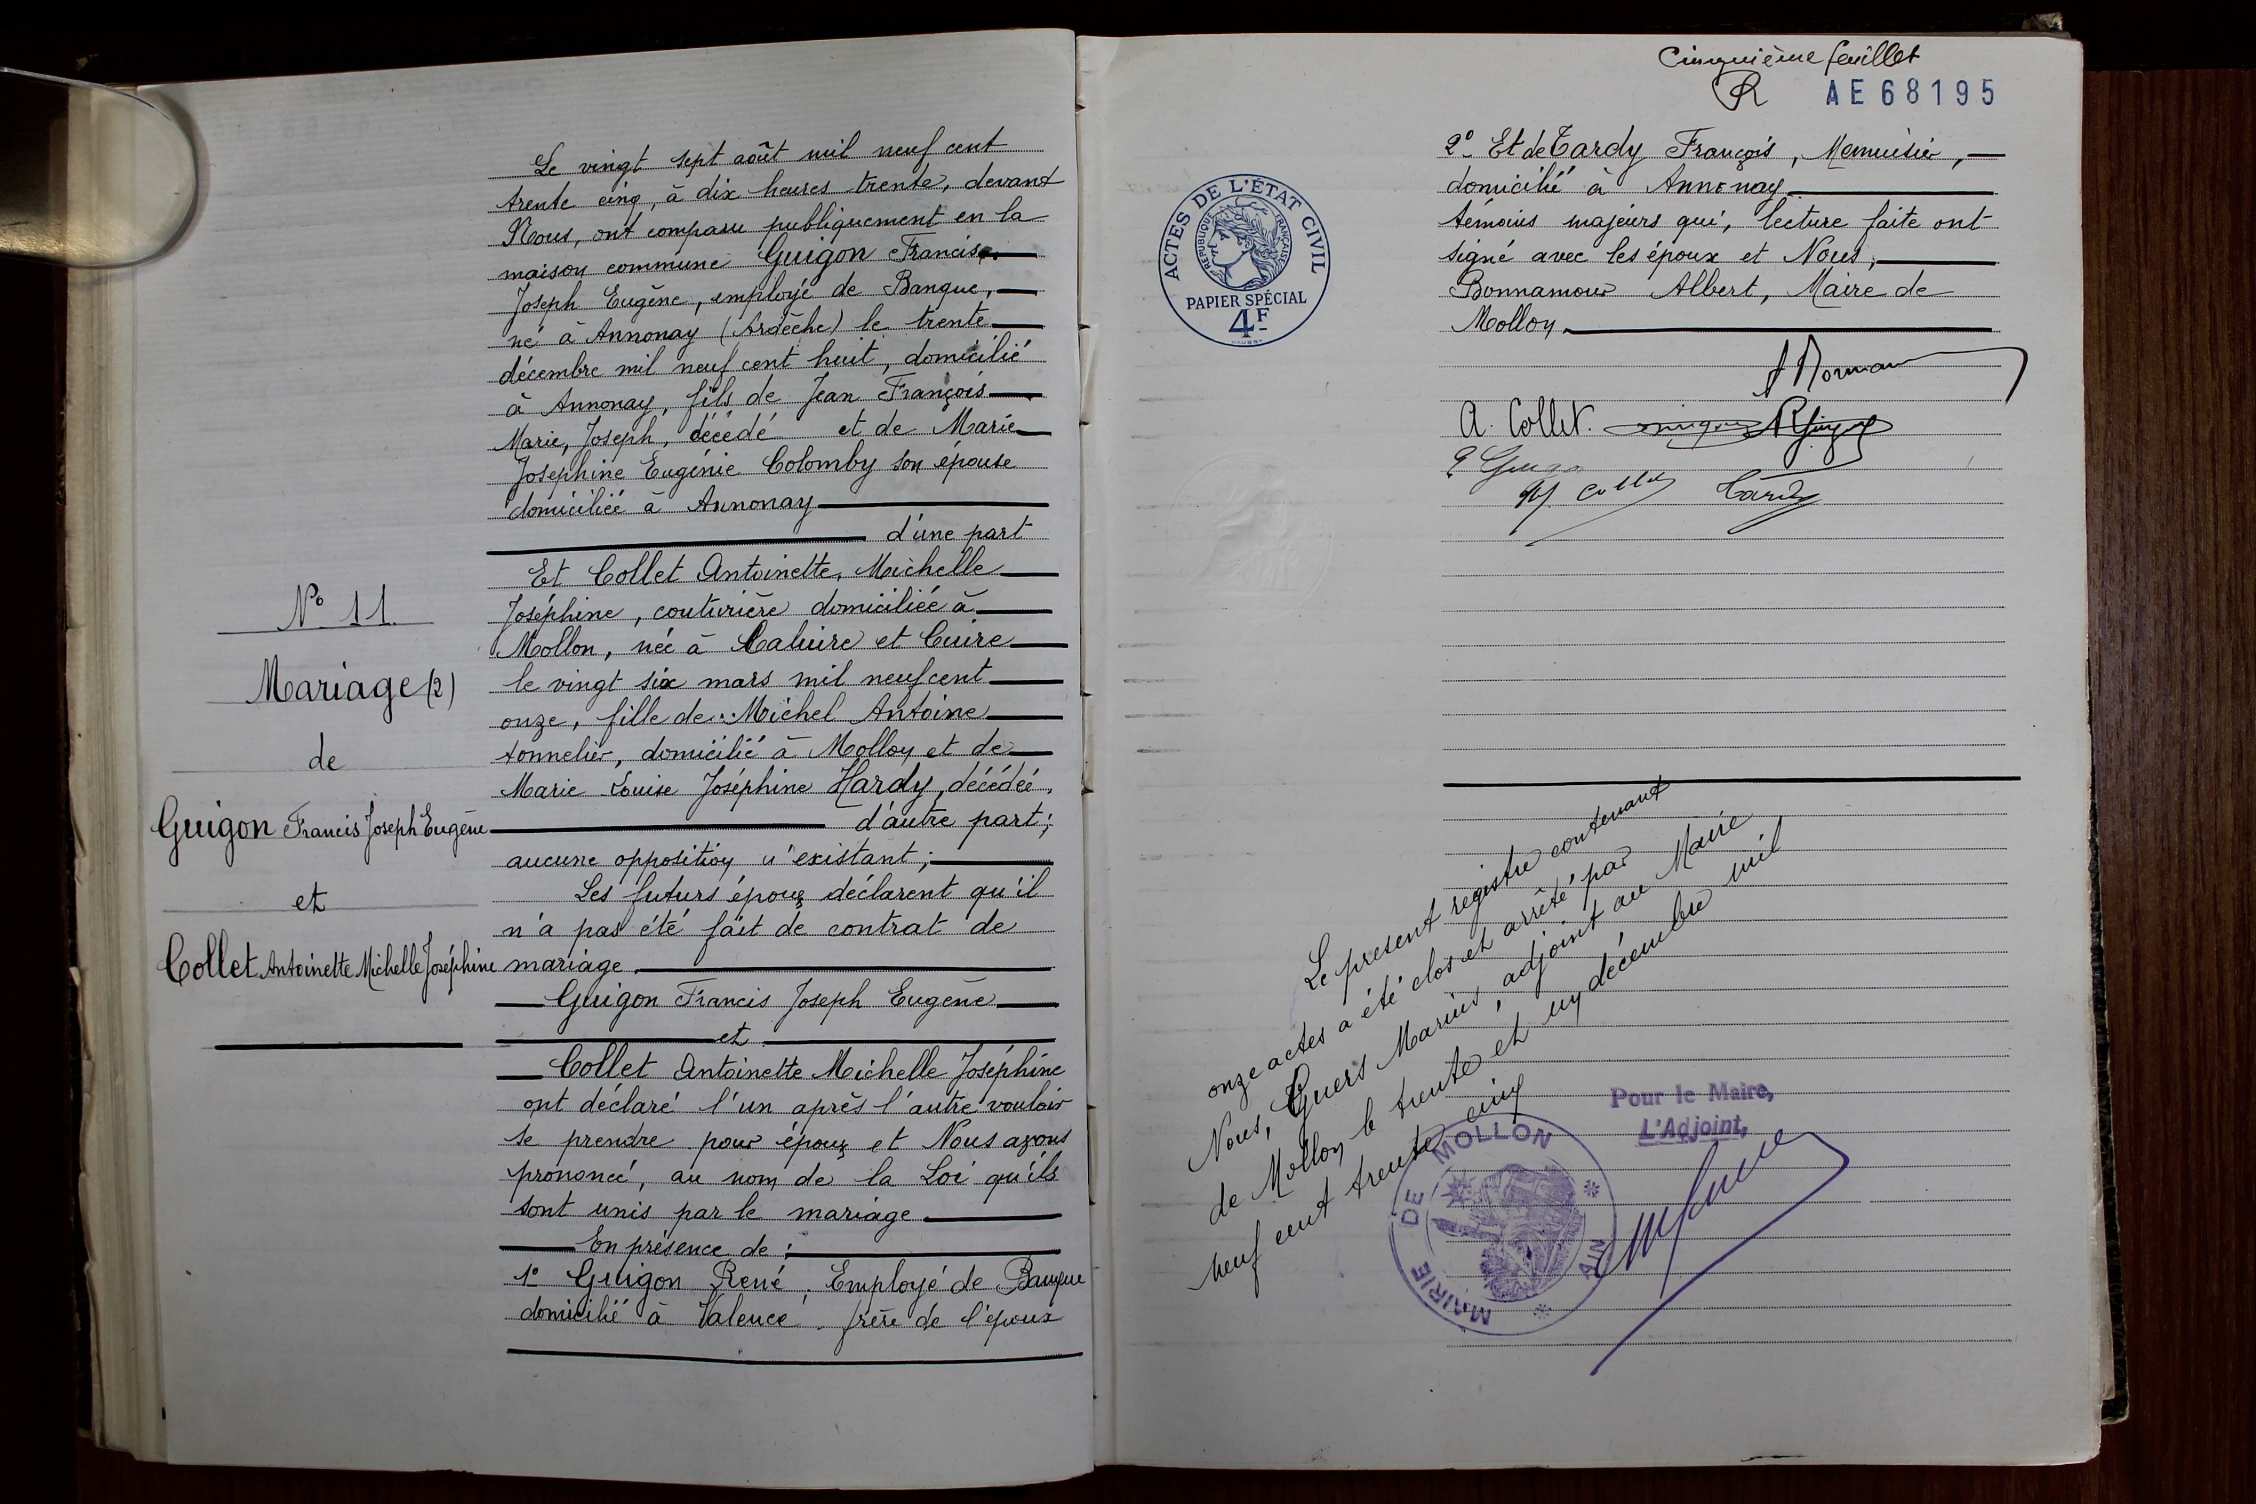 N° 11.
Mariage (2)
de
Guigon Francis Joseph Eugène
et
Collet Antoinette Michelle Joséphine
Le vingt sept août mil neuf cent
trente cinq, à dix heures trente, devant
Nous, ont comparu publiquement en la
maison commune Guigon Francis
Joseph Eugène, employé de Banque,
né à Annonay (Ardèche) le trente
décembre mil neuf cent huit, domicilié
à Annonay, fils de Jean François
Marie, Joseph, décédé et de Marie
Josephine Eugénie Colomby son épouse
domiciliée à Annonay
d'une part
Et Collet Antoinette, Michelle
Joséphine, couturière domiciliée à
Mollon, née à Caluire et Cuire
le vingt six mars mil neuf cent
onze, fille de Michel Antoine
tonnelier, domicilié à Mollon et de
Marie Louise Joséphine Hardy, décédée,
d'autre part;
aucune opposition n'existant;
Les futurs époux déclarent qu'il
n'a pas été fait de contrat de
mariage
Guigon Francis Joseph Eugène
et
Collet Antoinette Michelle Joséphine
ont déclaré l'un après l'autre vouloir
se prendre pour époux et Nous avons
prononcé, au nom de la Loi qu'ils
sont unis par le mariage
En présence de :
1° Guigon René, Employé de Banque
domicilié à Valence, frère de l'époux
Cinquième feuillet
R AE68195
ACTES DE L'ÉTAT CIVIL
RÉPUBLIQUE FRANÇAISE
PAPIER SPÉCIAL
4F
2° Et de Tardy François, Menuisier,
domicilié à Annonay
témoins majeurs qui, lecture faite ont
signé avec les époux et Nous,
Bonnamour Albert, Maire de
Mollon
A. Collet.
Collet Tardy
Le présent registre contenant
onze actes a été clos et arrêté par
Nous, Guers Marius, adjoint au Maire
de Mollon le trente et un décembre mil
neuf cent trente cinq
Pour le Maire,
L'Adjoint,
MAIRIE DE MOLLON
AIN